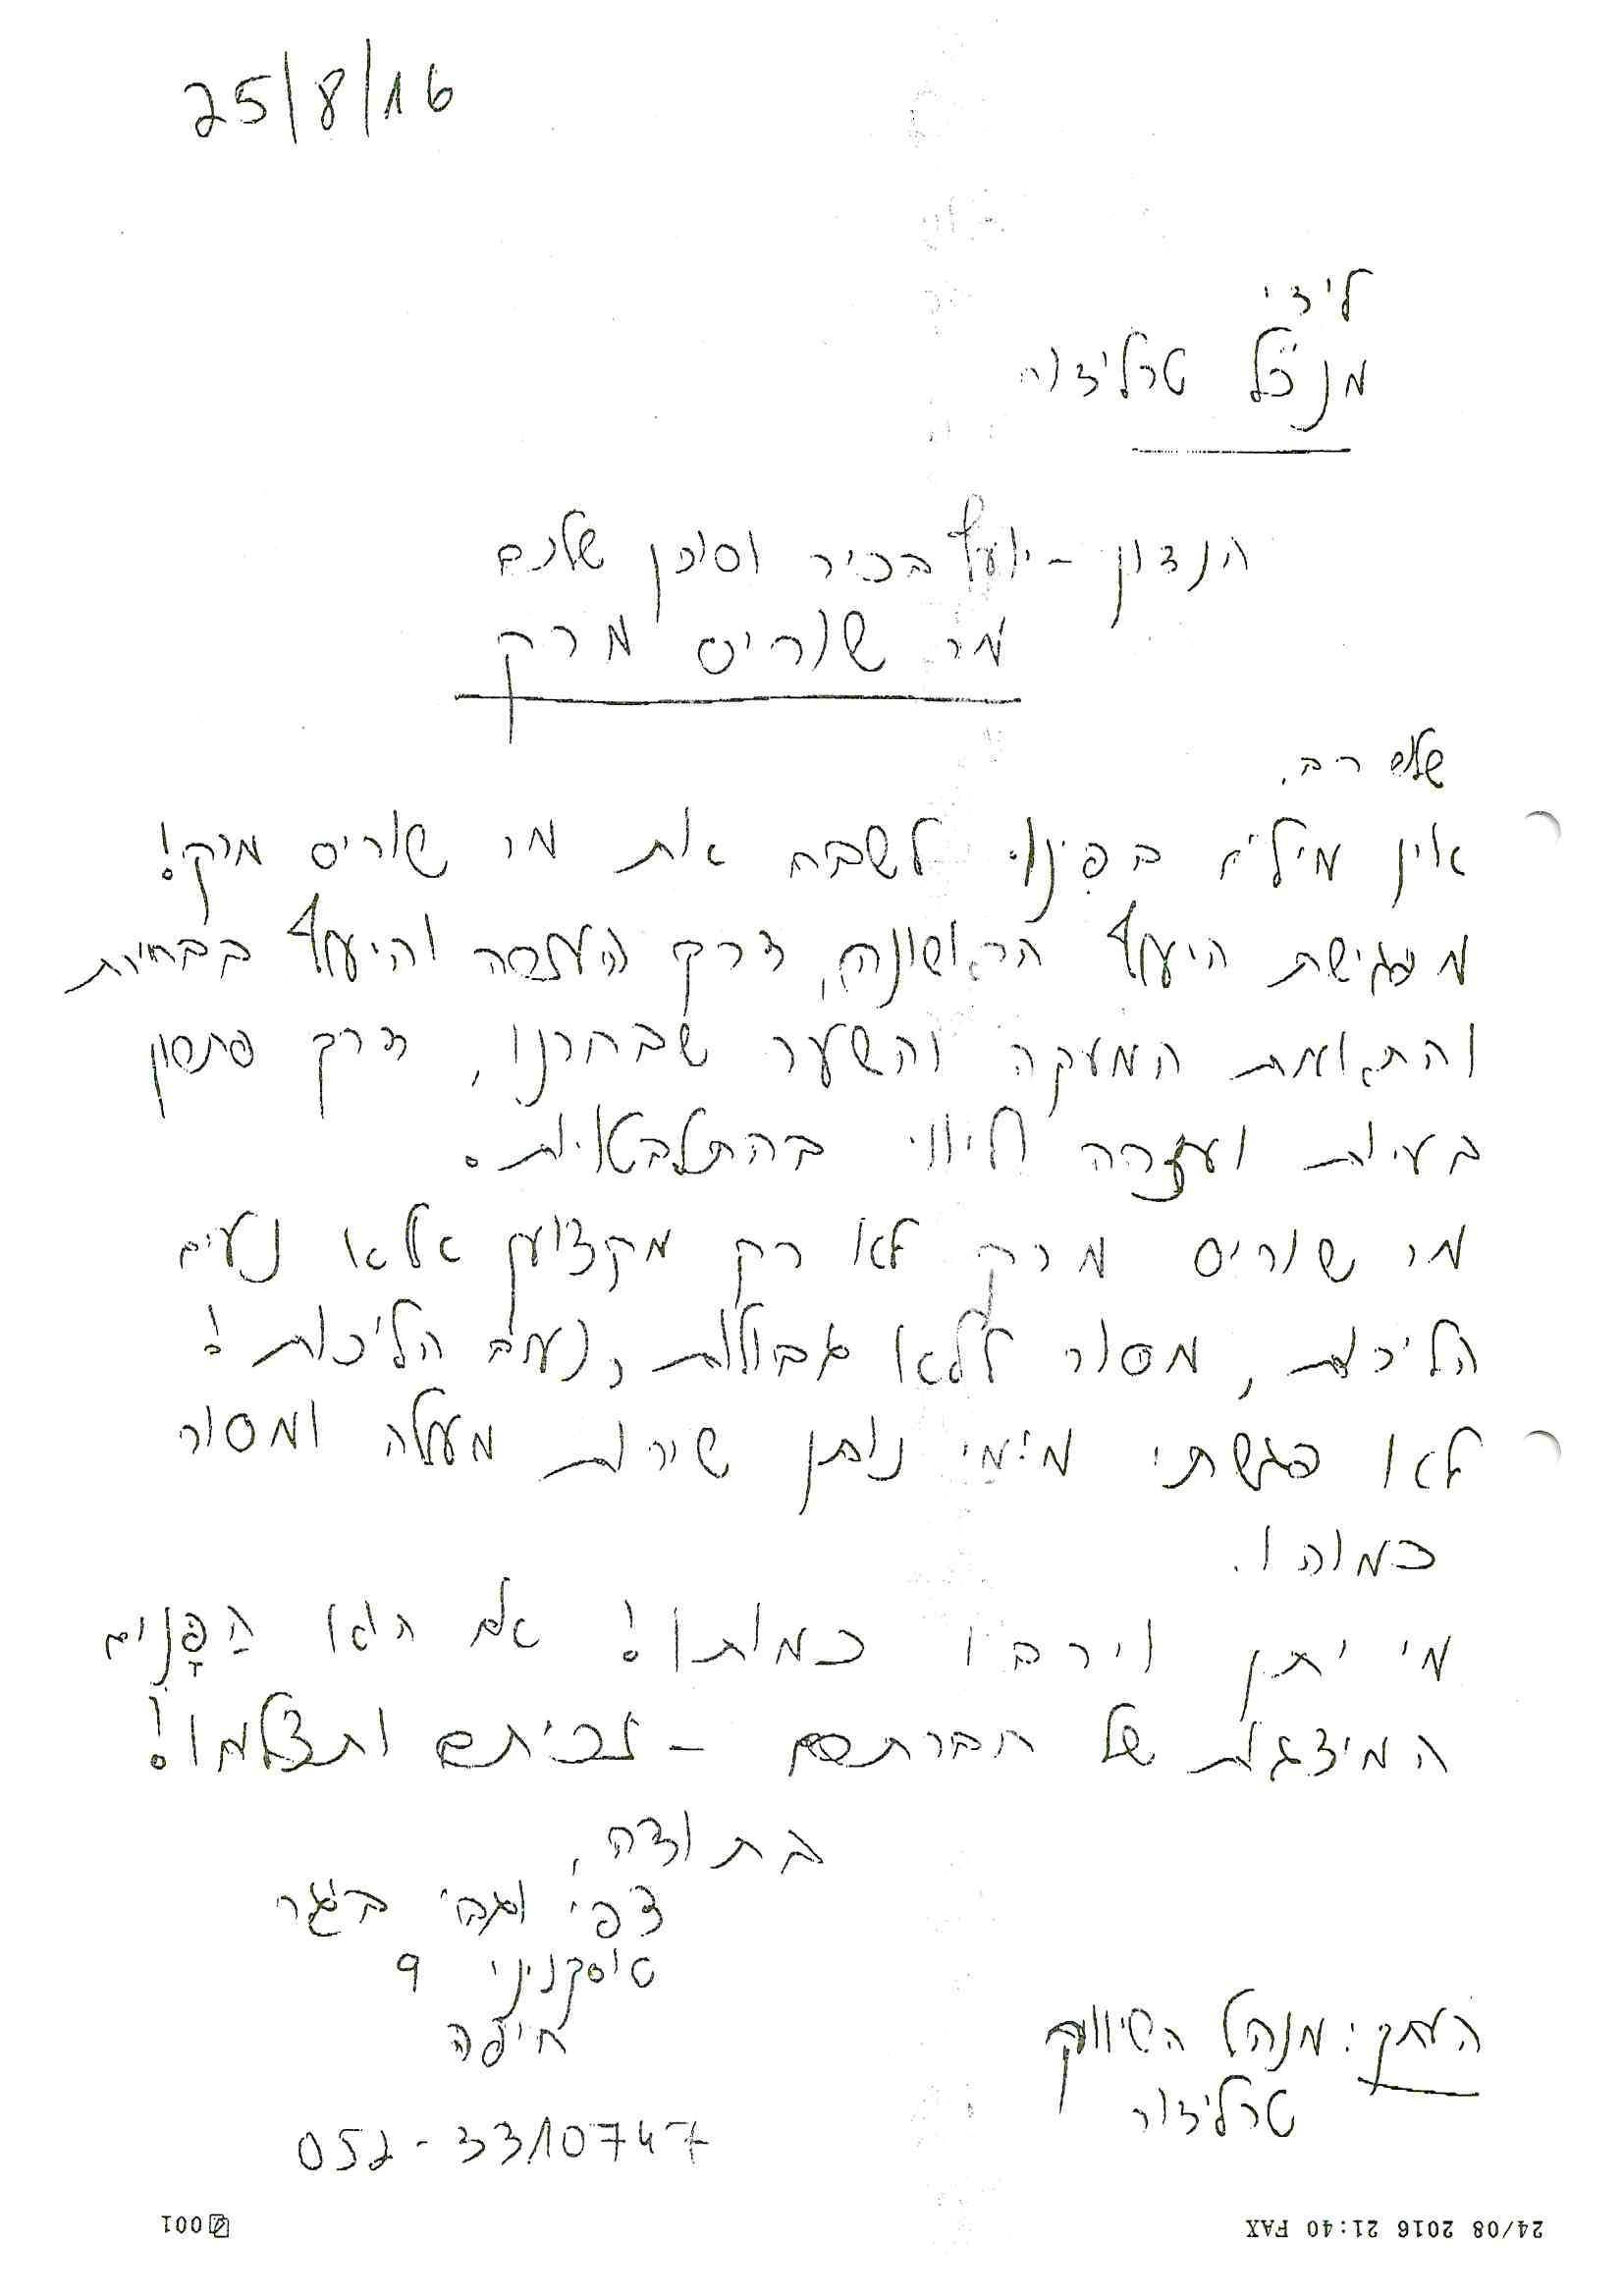 25/8/16
לידי
מנכ"ל טרלידור
הנדון - יועץ בכיר וסוכן שלכם
מר שוריס מרק
שלום רב.
אין מילים בפינו לשבח את מר שוריס מרק!
מפגישת היעוץ הראשונה, דרך העזרה והיעוץ בבחירת
והתאמת המעקה והשער שבחרנו, דרך פתרון
בעיות ועזרה וליווי בהתלבטויות.
מר שוריס מרק לא רק מקצוען אלא נעים
הליכות, מסור ללא גבולות, נועם הליכות!
לא פגשתי מימי נותן שירות מעולה ומסור
כמוהו.
מי יתן וירבו כמותו! אם הוא הַפָּנים
המיצגות של חברתכם - זכיתם ותצלחו!
בתודה,
דפי וגבי ביגר
טוסקניני 9
חיפה
העתק: מנהל השיווק
טרלידור
052-3310747
24/08 2016 21:40 FAX
001